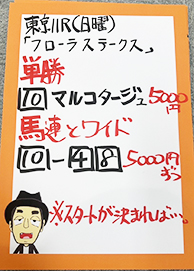 東京11R(日曜)
「フローラステークス」
単勝
10 マルコタージュ 5000円
馬連とワイド
10-48 5000円ずつ
※スタートが決まれば…。